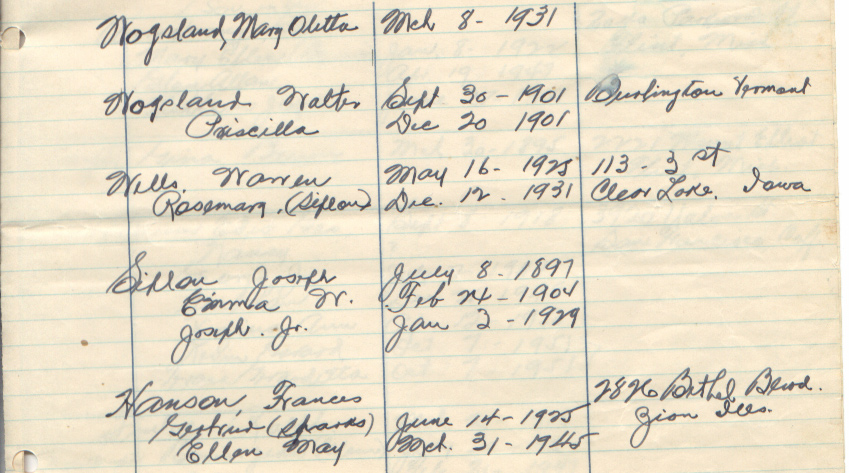 Wogsland, Mary Oletta Mch 8 - 1931
Wogsland Walter Sept 30 - 1901 Burlington Vermont
Priscilla Dec 20 1901
Wells, Warren May 16 - 1925 113 - 3 st
Rosemary, (Siplon) Dec. 12. 1931 Clear Lake, Iowa
Siplon Joseph July 8 - 1897
Emma W. Feb 24 - 1904
Joseph. Jr. Jan 2 - 1929
Hanson, Frances 2826 Bethel Blvd.
Gertrud (Sparks) June 14 - 1925 Zion Ills.
Ellen May Mch. 31 - 1945